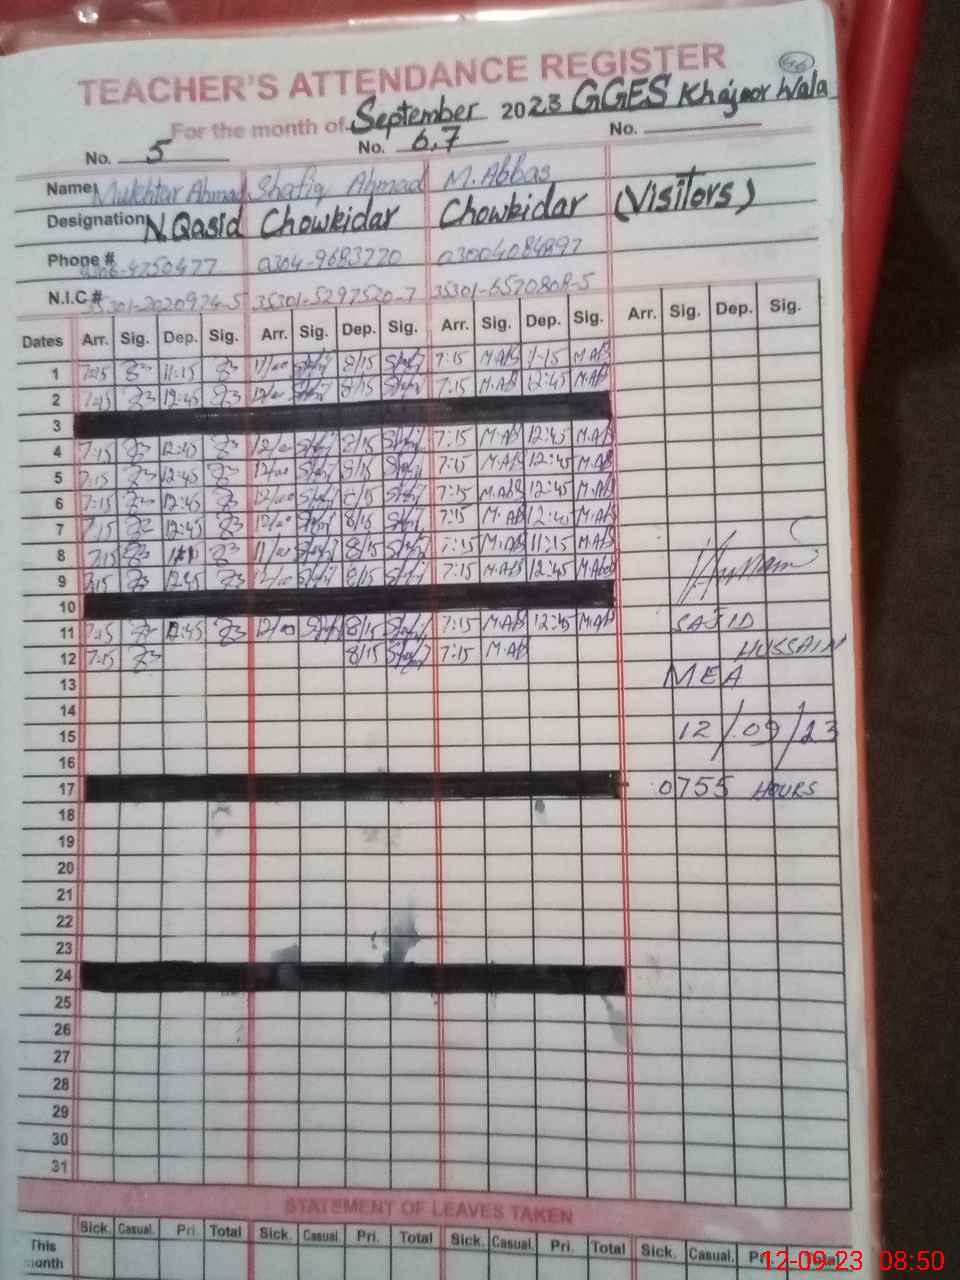 96
TEACHER'S ATTENDANCE REGISTER
For the month of September 2023 GGES Khajoor Wala
No. 5 No. 6,7 No.
Name Mukhtar Ahmad Shafiq Ahmad M. Abbas
Designation N.Qasid Chowkidar Chowkidar (Visitors)
Phone # 4750477 0304-9683720 03004084897
N.I.C # 35301-2020974-5 35301-5297520-7 35301-6570808-5
Dates Arr. Sig. Dep. Sig. Arr. Sig. Dep. Sig. Arr. Sig. Dep. Sig. Arr. Sig. Dep. Sig.
1 7:15 11:15 11/00 8/15 7:15 M.AB 1-15 M.AB
2 7:15 12:45 12/00 8/15 7:15 M.AB 12:45 M.AB
3
4 7:15 12:45 12/00 8/15 7:15 M.AB 12:45 M.AB
5 7:15 12:45 12/00 8/15 7:15 M.AB 12:45 M.AB
6 7:15 12:45 12/00 8/15 7:15 M.AB 12:45 M.AB
7 7:15 12:45 12/00 8/15 7:15 M.AB 12:45 M.AB
8 7:15 11/00 8/15 7:15 M.AB 11:15 M.AB
9 7:15 12:45 12/00 8/15 7:15 M.AB 12:45 M.Abb
10
11 7:15 12:45 12/00 8/15 7:15 M.AB 12:45 M.AB SAJID
12 7:15 8/15 7:15 M.AB HUSSAIN
13 MEA
14
15 12/09/23
16
17 0755 HOURS
18
19
20
21
22
23
24
25
26
27
28
29
30
31
STATEMENT OF LEAVES TAKEN
Sick. Casual. Pri. Total Sick. Casual. Pri. Total Sick. Casual. Pri. Total Sick. Casual. Pri. Total
This
month
12-09-23 08:50